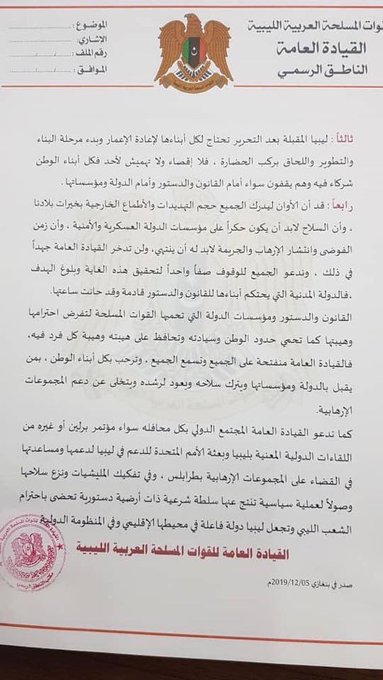 القوات المسلحة العربية الليبية
القيادة العامة
الناطق الرسمي
الموضوع :
الإشاري :
رقم الملف :
الموافق :
ثالثاً : ليبيا المقبلة بعد التحرير تحتاج لكل أبناءها لإعادة الإعمار وبدء مرحلة البناء
والتطوير واللحاق بركب الحضارة ، فلا إقصاء ولا تهميش لأحد فكل أبناء الوطن
شركاء فيه وهم يقفون سواء أمام القانون والدستور وأمام الدولة ومؤسساتها .
رابعاً : قد أن الأوان ليدرك الجميع حجم التهديدات والأطماع الخارجية بخيرات بلادنا
، وأن السلاح لابد أن يكون حكراً على مؤسسات الدولة العسكرية والأمنية ، وأن زمن
الفوضى وانتشار الإرهاب والجريمة لابد له أن ينتهي، ولن تدخر القيادة العامة جهداً
في ذلك ، وندعو الجميع للوقوف صفاً واحداً لتحقيق هذه الغاية وبلوغ الهدف
، فالدولة المدنية التي يحتكم أبناءها للقانون والدستور قادمة وقد حانت ساعتها.
القانون والدستور ومؤسسات الدولة التي تحميها القوات المسلحة لتفرض احترامها
وهيبتها كما تحمي حدود الوطن وسيادته وتحافظ على هيبته وهيبة كل فرد فيه،
فالقيادة العامة منفتحة على الجميع وتسمع الجميع ، وترحب بكل أبناء الوطن ، بمن
يقبل بالدولة ومؤسساتها ويترك سلاحه ويعود لرشده ويتخلى عن دعم المجموعات
الإرهابية.
كما تدعو القيادة العامة المجتمع الدولي بكل محافله سواء مؤتمر برلين أو غيره من
اللقاءات الدولية المعنية بليبيا وبعثة الأمم المتحدة للدعم في ليبيا لدعمها ومساعدتها
في القضاء على المجموعات الإرهابية بطرابلس ، وفي تفكيك المليشيات ونزع سلاحها
وصولاً لعملية سياسية تنتج عنها سلطة شرعية ذات أرضية دستورية تحضى باحترام
الشعب الليبي وتجعل ليبيا دولة فاعلة في محيطها الإقليمي وفي المنظومة الدولية
القيادة العامة للقوات المسلحة العربية الليبية
صدر في بنغازي 2019/12/05م